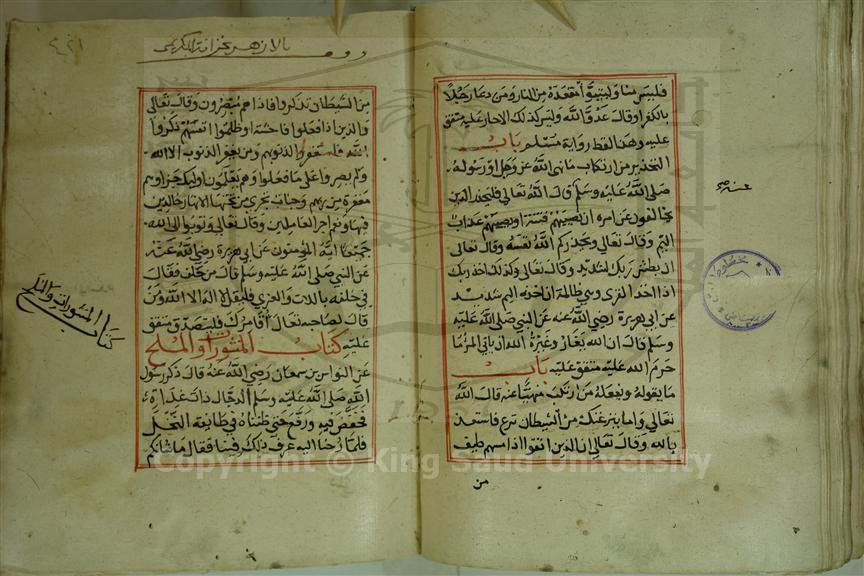 فليس منا وليتبوأ مقعده من النار ومن دعا رجلا
بالكفر او قال عدو الله وليس كذلك الا حار عليه متفق
عليه وهذا لفظ رواية مسلم باب
التحذير من ارتكاب ما نهى الله عز وجل او رسوله
صلى الله عليه وسلم قال الله تعالى فليحذر الذين
يخالفون عن امره ان تصيبهم فتنة او يصيبهم عذاب
اليم وقال تعالى ويحذركم الله نفسه وقال تعالى
ان بطش ربك لشديد وقال تعالى وكذلك اخذ ربك
اذا اخذ القرى وهي ظالمة ان اخذه اليم شديد
عن ابي هريرة رضي الله عنه عن النبي صلى الله عليه
وسلم قال ان الله يغار وغيرة الله ان ياتي المرء ما
حرم الله عليه متفق عليه باب
ما يقوله ويفعله من ارتكب منهيا عنه قال الله
تعالى واما ينزغنك من الشيطان نزغ فاستعذ
بالله وقال تعالى ان الذين اتقوا اذا مسهم طيف
من
من الشيطان تذكروا فاذا هم مبصرون وقال تعالى
والذين اذا فعلوا فاحشة او ظلموا انفسهم ذكروا
الله فاستغفروا لذنوبهم ومن يغفر الذنوب الا الله
ولم يصروا على ما فعلوا وهم يعلمون اوليك جزاوهم
مغفرة من ربهم وجنات تجري من تحتها الانهار خالدين
فيها ونعم اجر العاملين وقال تعالى وتوبوا الى الله
جميعا ايه المؤمنون عن ابي هريرة رضي الله عنه
عن النبي صلى الله عليه وسلم قال من حلف فقال
في حلفه باللات والعزى فليقل لا اله الا الله ومن
قال لصاحبه تعال اقامرك فليتصدق متفق
عليه كتاب المنثورات والملح
عن النواس بن سمعان رضي الله عنه قال ذكر رسول
الله صلى الله عليه وسلم الدجال ذات غداة
فخفض فيه ورفع حتى ظنناه في طايفة النخل
فلما رحنا اليه عرف ذلك فينا فقال ما شانكم
كتاب المنثورات والملح
Copyright © King Saud University